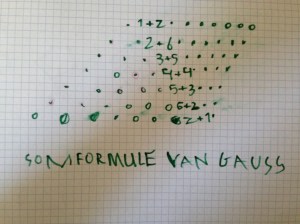 1+2
2+6
3+5
4+4
5+3
6+2
82+1
SOMFORMULE VAN GAUSS